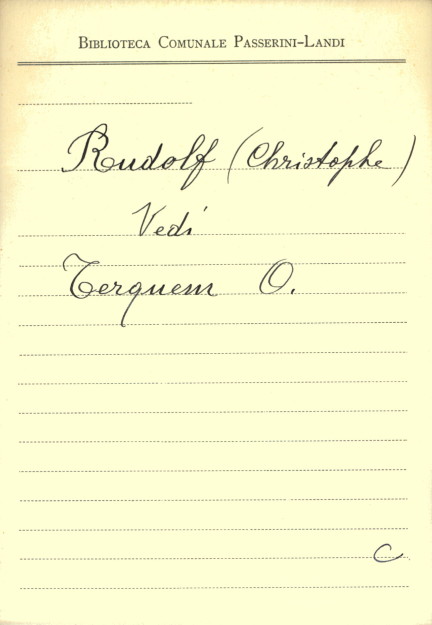 Biblioteca Comunale Passerini-Landi
Rudolf (Christophe)
Vedi
Terquem O.
C